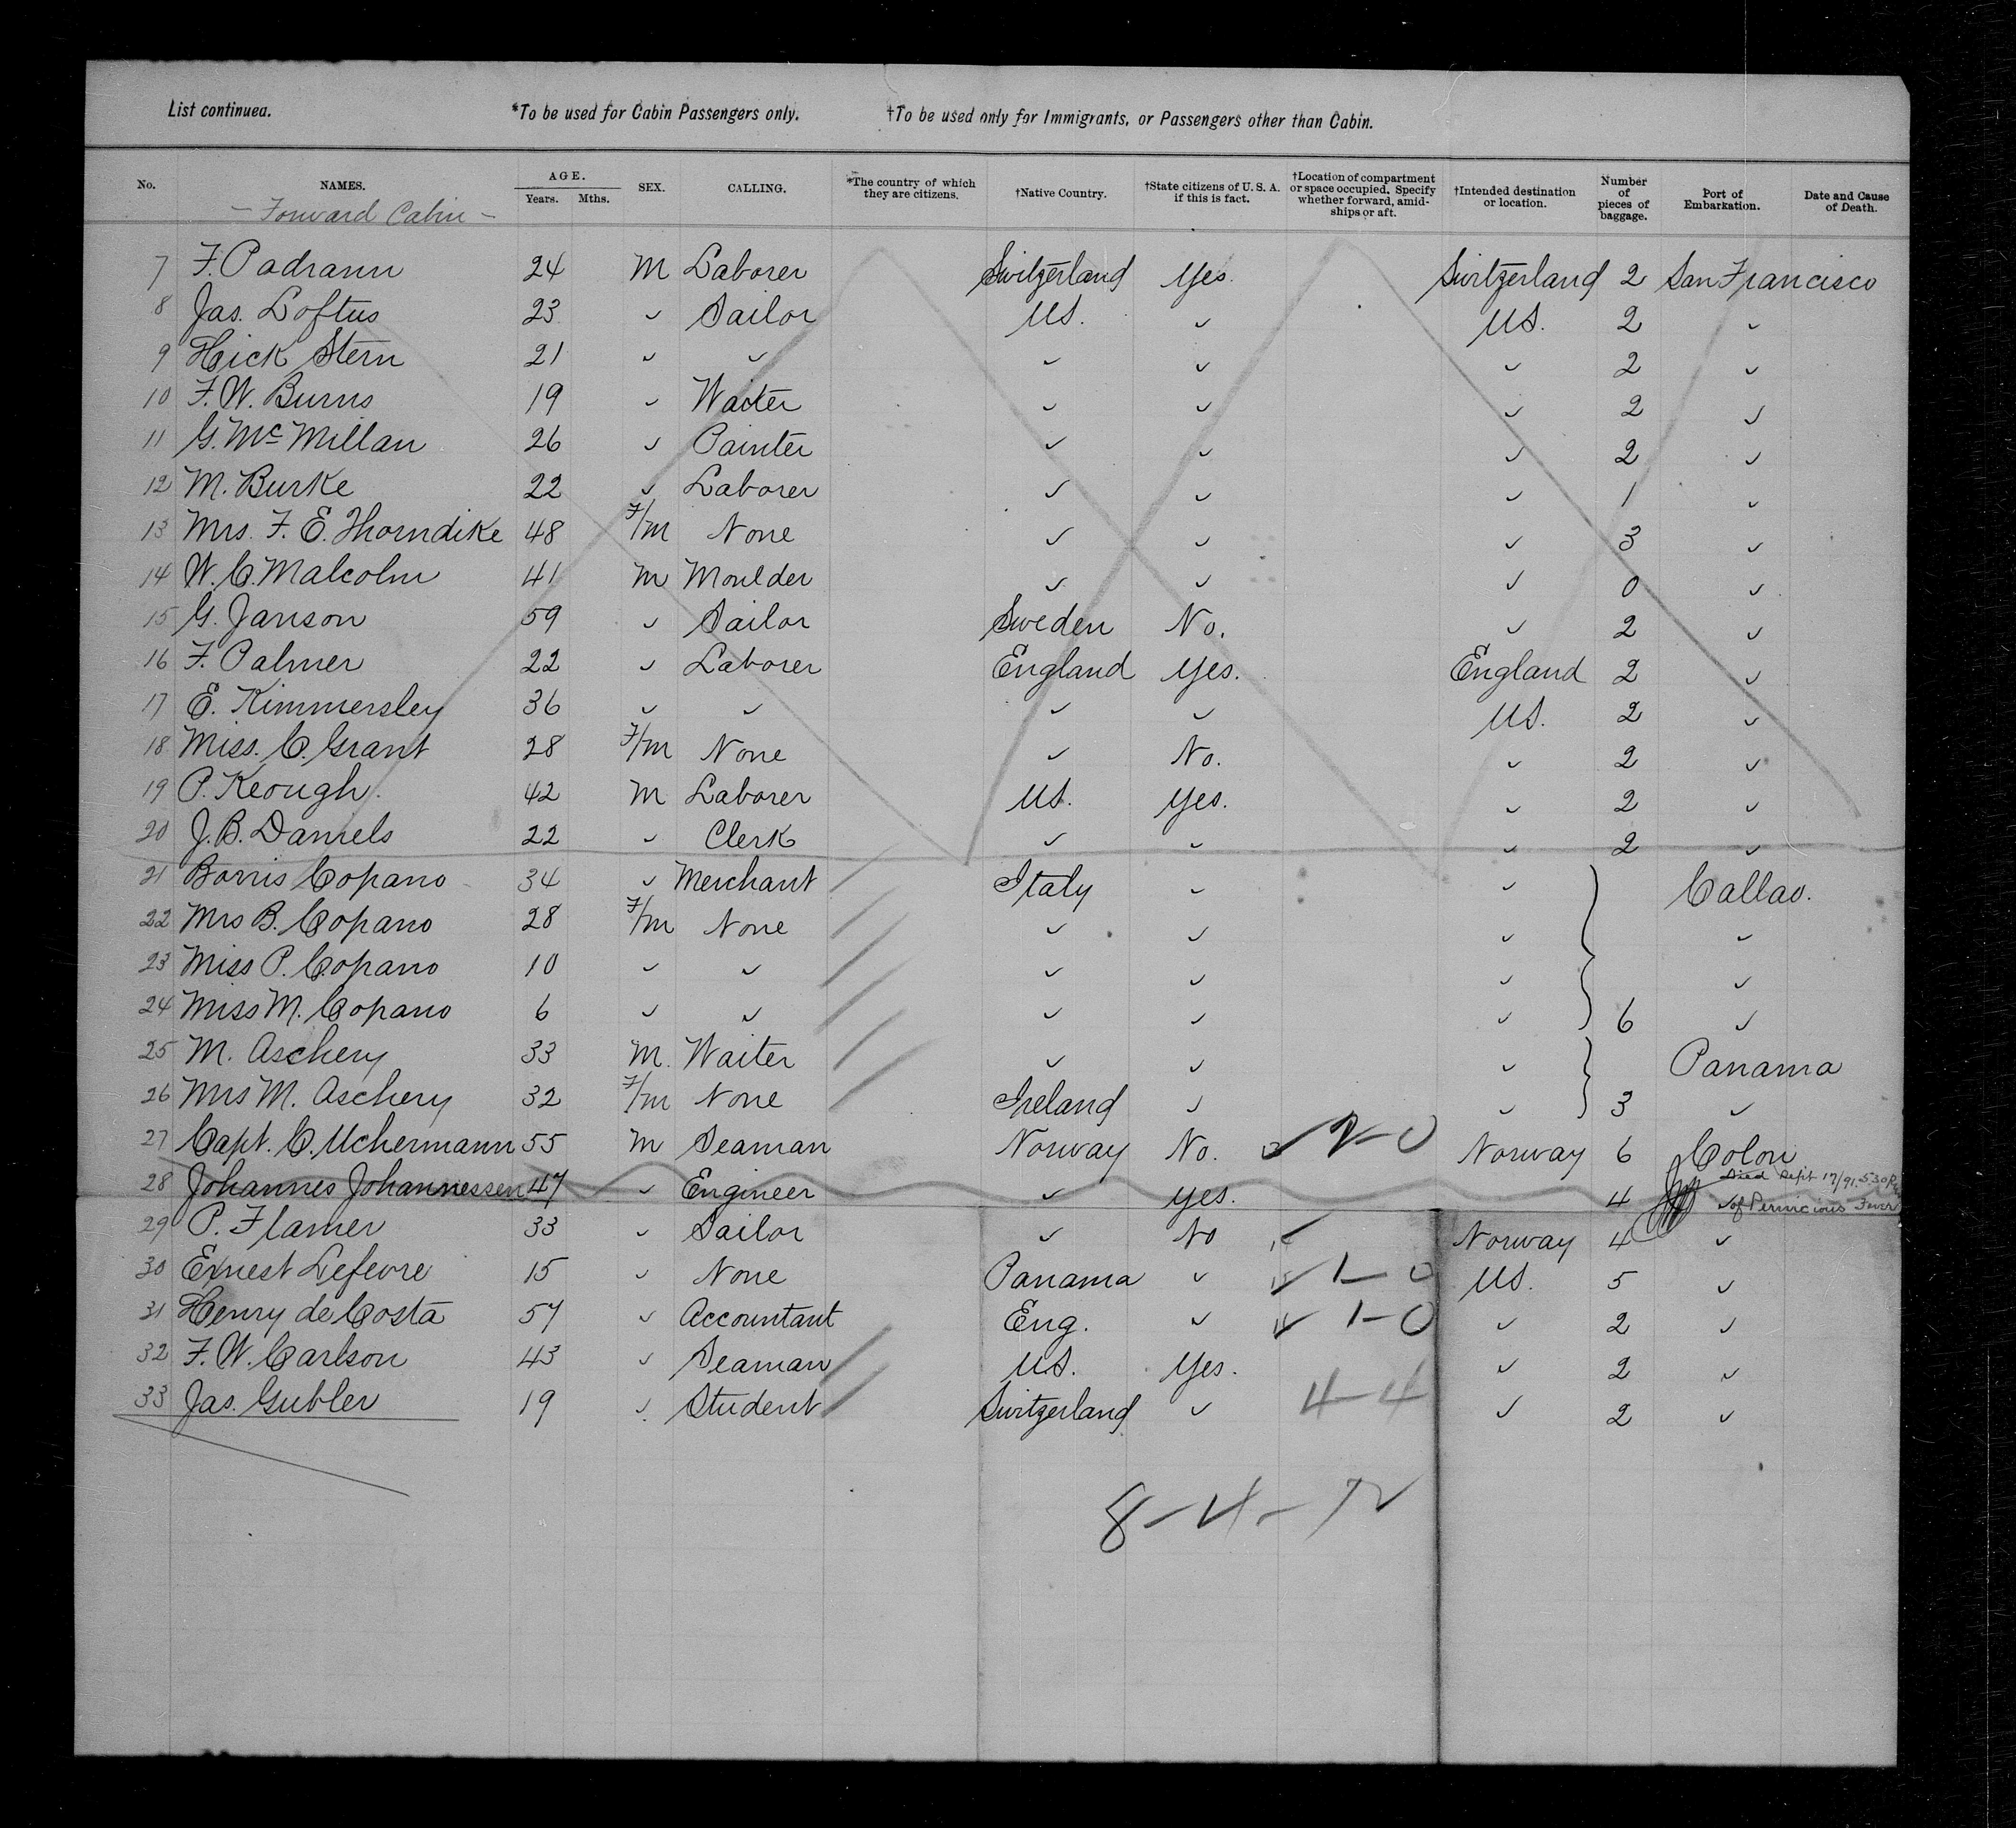 List continued. *To be used for Cabin Passengers only. †To be used only for Immigrants, or Passengers other than Cabin.
No. NAMES. AGE. Years. Mths. SEX. CALLING. *The country of which they are citizens. †Native Country. †State citizens of U. S. A. if this is fact. †Location of compartment or space occupied. Specify whether forward, amidships or aft. †Intended destination or location. Number of pieces of baggage. Port of Embarkation. Date and Cause of Death.
- Forward Cabin -
7 F. Padrann 24 M Laborer Switzerland Yes. Switzerland 2 San Francisco
8 Jas. Loftus 23 ✓ Sailor US. ✓ US. 2 ✓
9 Hick Stern 21 ✓ ✓ ✓ ✓ ✓ 2 ✓
10 F. W. Burns 19 ✓ Waiter ✓ ✓ ✓ 2 ✓
11 G. McMillan 26 ✓ Painter ✓ ✓ ✓ 2 ✓
12 M. Burke 22 ✓ Laborer ✓ ✓ ✓ 1 ✓
13 Mrs. F. E. Thorndike 48 F/m None ✓ ✓ ✓ 3 ✓
14 W. C. Malcolm 41 m Moulder ✓ ✓ ✓ 0 ✓
15 G. Janson 59 ✓ Sailor Sweden No. ✓ 2 ✓
16 F. Palmer 22 ✓ Laborer England Yes. England 2 ✓
17 E. Kimmersley 36 ✓ ✓ ✓ ✓ US. 2 ✓
18 Miss. C. Grant 28 F/m None ✓ No. ✓ 2 ✓
19 P. Keough. 42 M Laborer US. Yes. ✓ 2 ✓
20 J. B. Daniels 22 ✓ Clerk ✓ ✓ ✓ 2 ✓
21 Borris Copano 34 ✓ Merchant Italy ✓ ✓ Callao.
22 Mrs B. Copano 28 F/m None ✓ ✓ ✓ ✓
23 Miss P. Copano 10 ✓ ✓ ✓ ✓ ✓ ✓
24 Miss M. Copano 6 ✓ ✓ ✓ ✓ ✓ 6 ✓
25 M. Aschery 33 M. Waiter ✓ ✓ ✓ Panama
26 Mrs M. Aschery 32 F/m None Ireland ✓ ✓ 3 ✓
27 Capt. C. Uchermann 55 M Seaman Norway No. ✓ 2-0 Norway 6 Colon
28 Johannes Johannessen 47 ✓ Engineer ✓ Yes. 4 ✓ Died Sept 17/91. 5.30 P.M. of Pernicious Fever
29 P. Flamer 33 ✓ Sailor ✓ No ✓ Norway 4 ✓
30 Ernest Lefevre 15 ✓ None Panama ✓ ✓ 1-0 US. 5 ✓
31 Henry de Costa 57 ✓ Accountant Eng. ✓ ✓ 1-0 ✓ 2 ✓
32 F. W. Carlson 43 ✓ Seaman U.S. Yes. ✓ 2 ✓
33 Jas. Gubler 19 ✓ Student Switzerland ✓ 4-4 ✓ 2 ✓